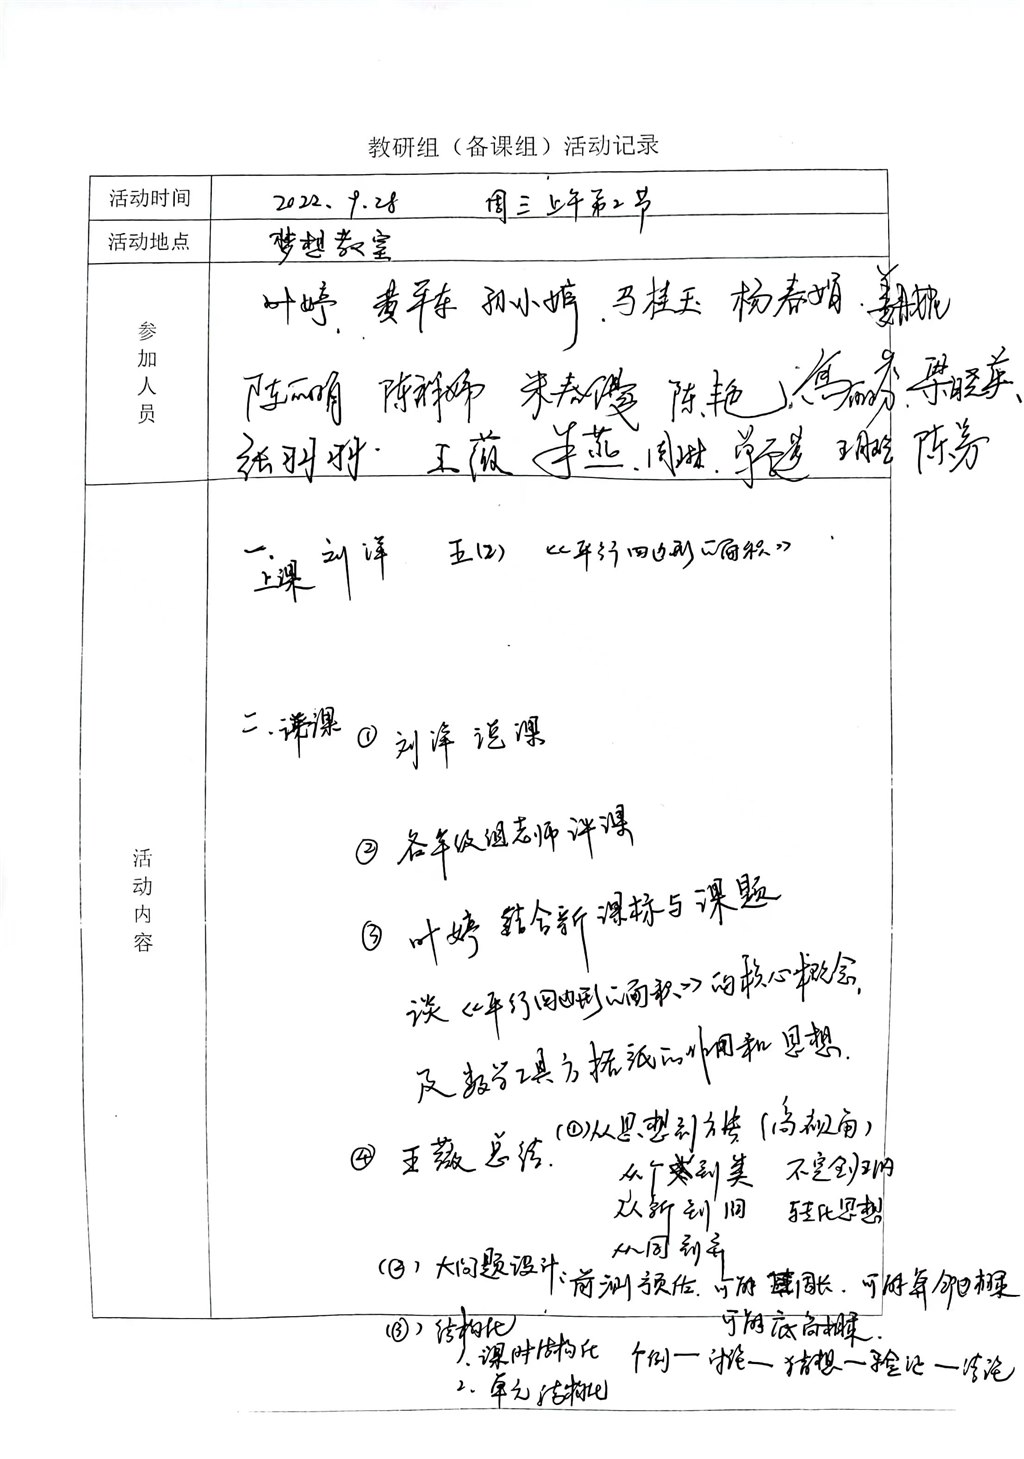 教研组（备课组）活动记录
活动时间 2022. 9. 28 周三上午第2节
活动地点 梦想教室
参加人员
叶婷. 黄军东 孙小婷. 马桂玉 杨春娟.
陈丽娟 陈祥娣 陈艳 梁晓英.
张科科. 王薇 朱燕. 周琳. 陈芳
活动内容
一. 上课 刘洋 五(2) 《平行四边形的面积》
二. 评课 ① 刘洋说课
② 各年级组老师评课
③ 叶婷 结合新课标与课题
谈《平行四边形的面积》的核心概念,
及数学工具方格纸的作用和思想.
④ 王薇总结. (①)从思想到方法 (高视角)
从个到类 不完全归纳
从新到旧 转化思想
从同到异
(2) 大问题设计: 前测预估. 可能周长. 可能算邻边相乘
可能底高相乘.
(3) 结构化
1. 课时结构化 个例—讨论—猜想—验证—结论
2. 单元结构化